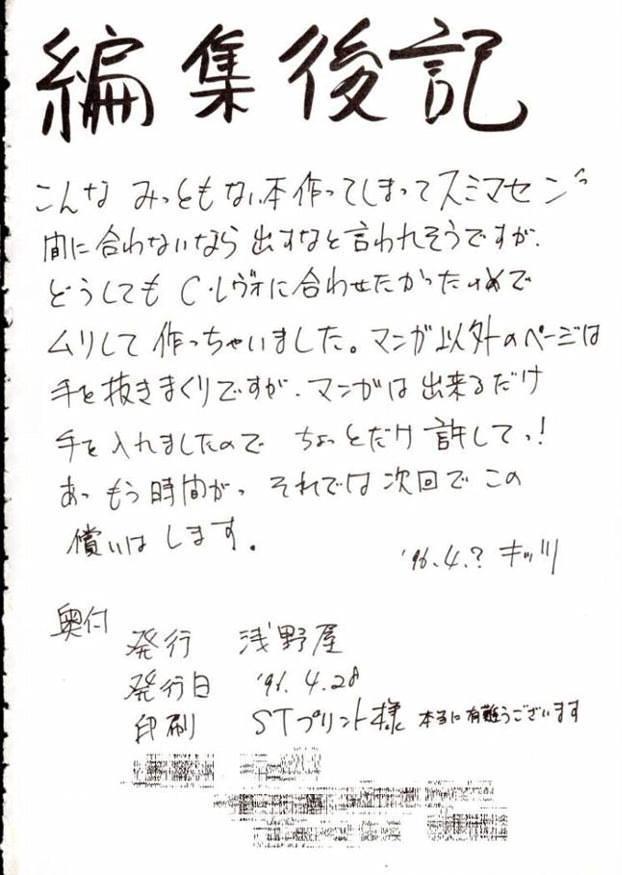 編集後記
こんな みっともない本作ってしまってスミマセンっ
間に合わないなら 出すなと言われそうですが、
どうしても C・レヴォに合わせたかったためで
ムリして 作っちゃいました。マンガ以外のページは
手を抜きまくりですが、マンガは出来るだけ
手を入れましたので ちょっとだけ許してっ!
あっ もう時間がっ それでは次回で この
償いは します。
'96.4.? キッツ
奥付
発行 浅野屋
発行日 '96.4.28
印刷 STプリント様 本当に有難うございます